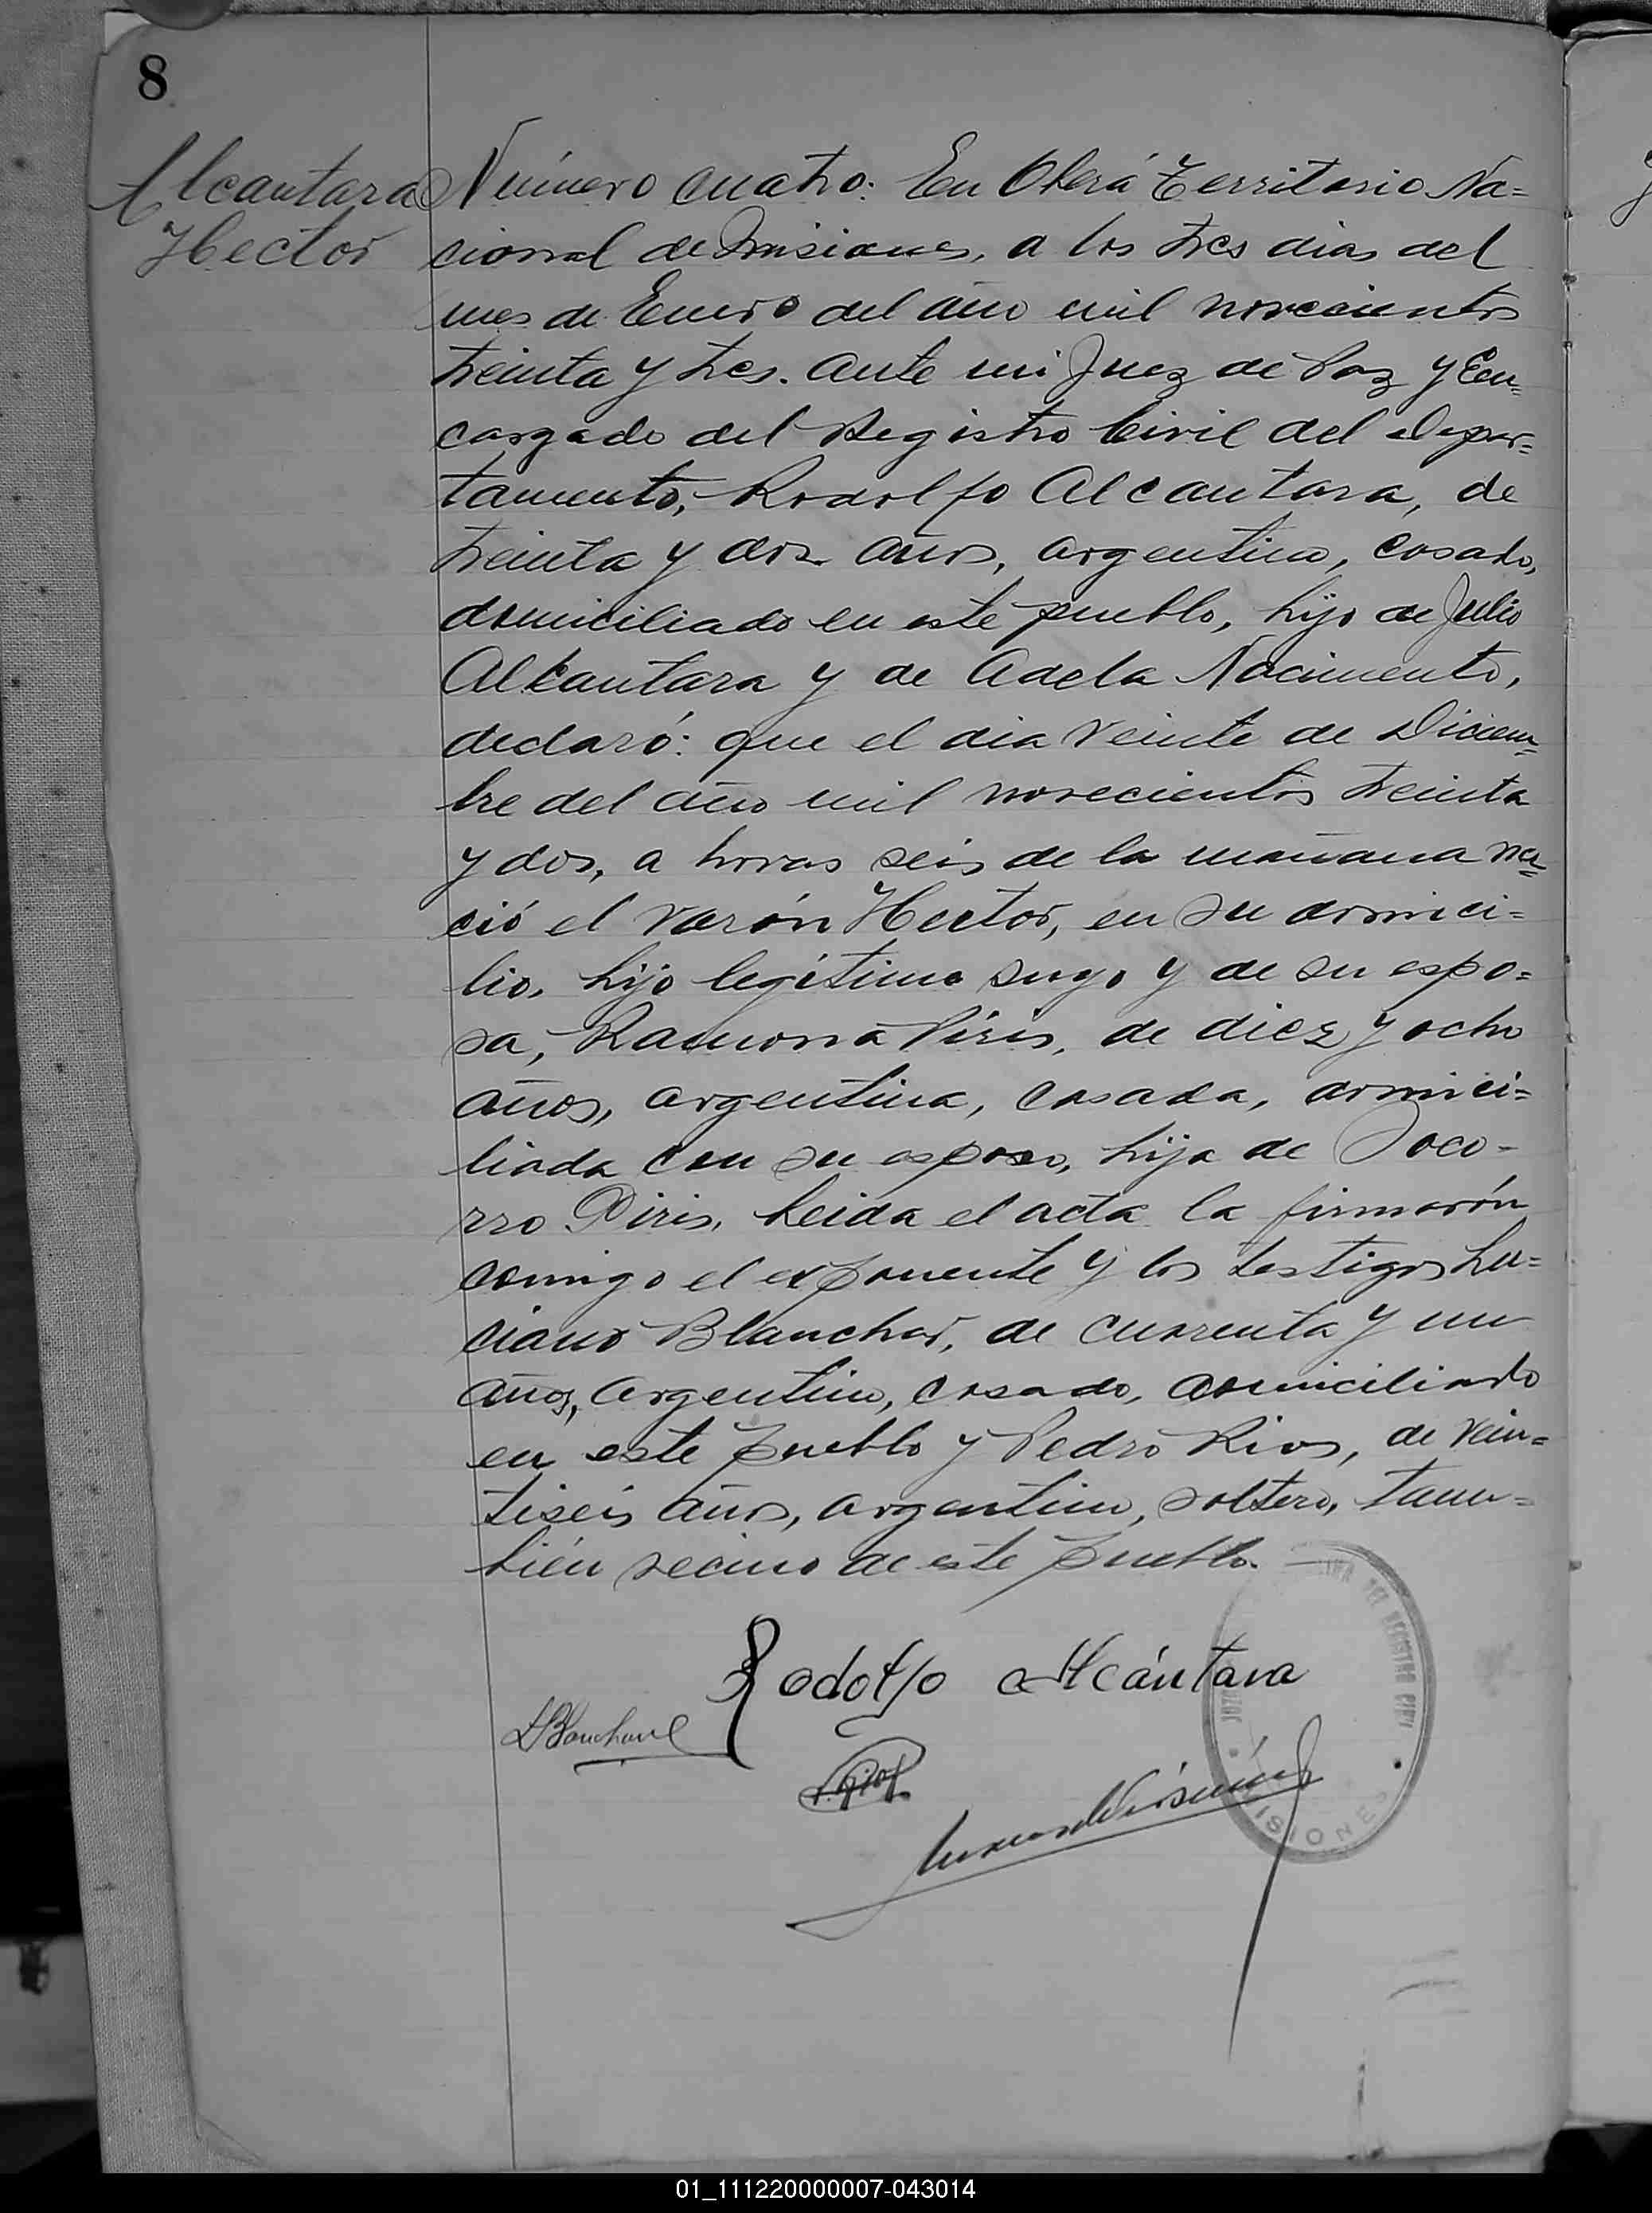 8
Alcantara
Hector
Número cuatro: En Oberá Territorio Na=
cional de Misiones, a los tres dias del
mes de Enero del año mil novecientos
treinta y tres. ante mi Juez de Paz y En=
cargado del Registro Civil del Depar=
tamento, Rodolfo Alcantara, de
treinta y dos años, argentino, casado,
domiciliado en este pueblo, hijo de Julio
Alcantara y de Adela Nacimento,
declaró: que el dia veinte de Diciem=
bre del año mil novecientos treinta
y dos, a horas seis de la mañana na=
ció el varón Hector, en su domici=
lio, hijo legítimo suyo y de su espo=
sa, Ramona Piris, de diez y ocho
años, argentina, casada, domici=
liada con su esposo, hija de Soco-
rro Piris, Leida el acta la firmarón
comigo el exponente y los testigos Lu=
ciano Blanchar, de cuarenta y un
años, argentino, casado, domiciliado
en este pueblo y Pedro Rios, de vein=
tiseis años, argentino, soltero, tam=
bién vecino de este pueblo.
Rodolfo Alcántara
LBlanchard
P. Rios
JUZ DEL REGISTRO CIVIL
MISIONES
01_111220000007-043014